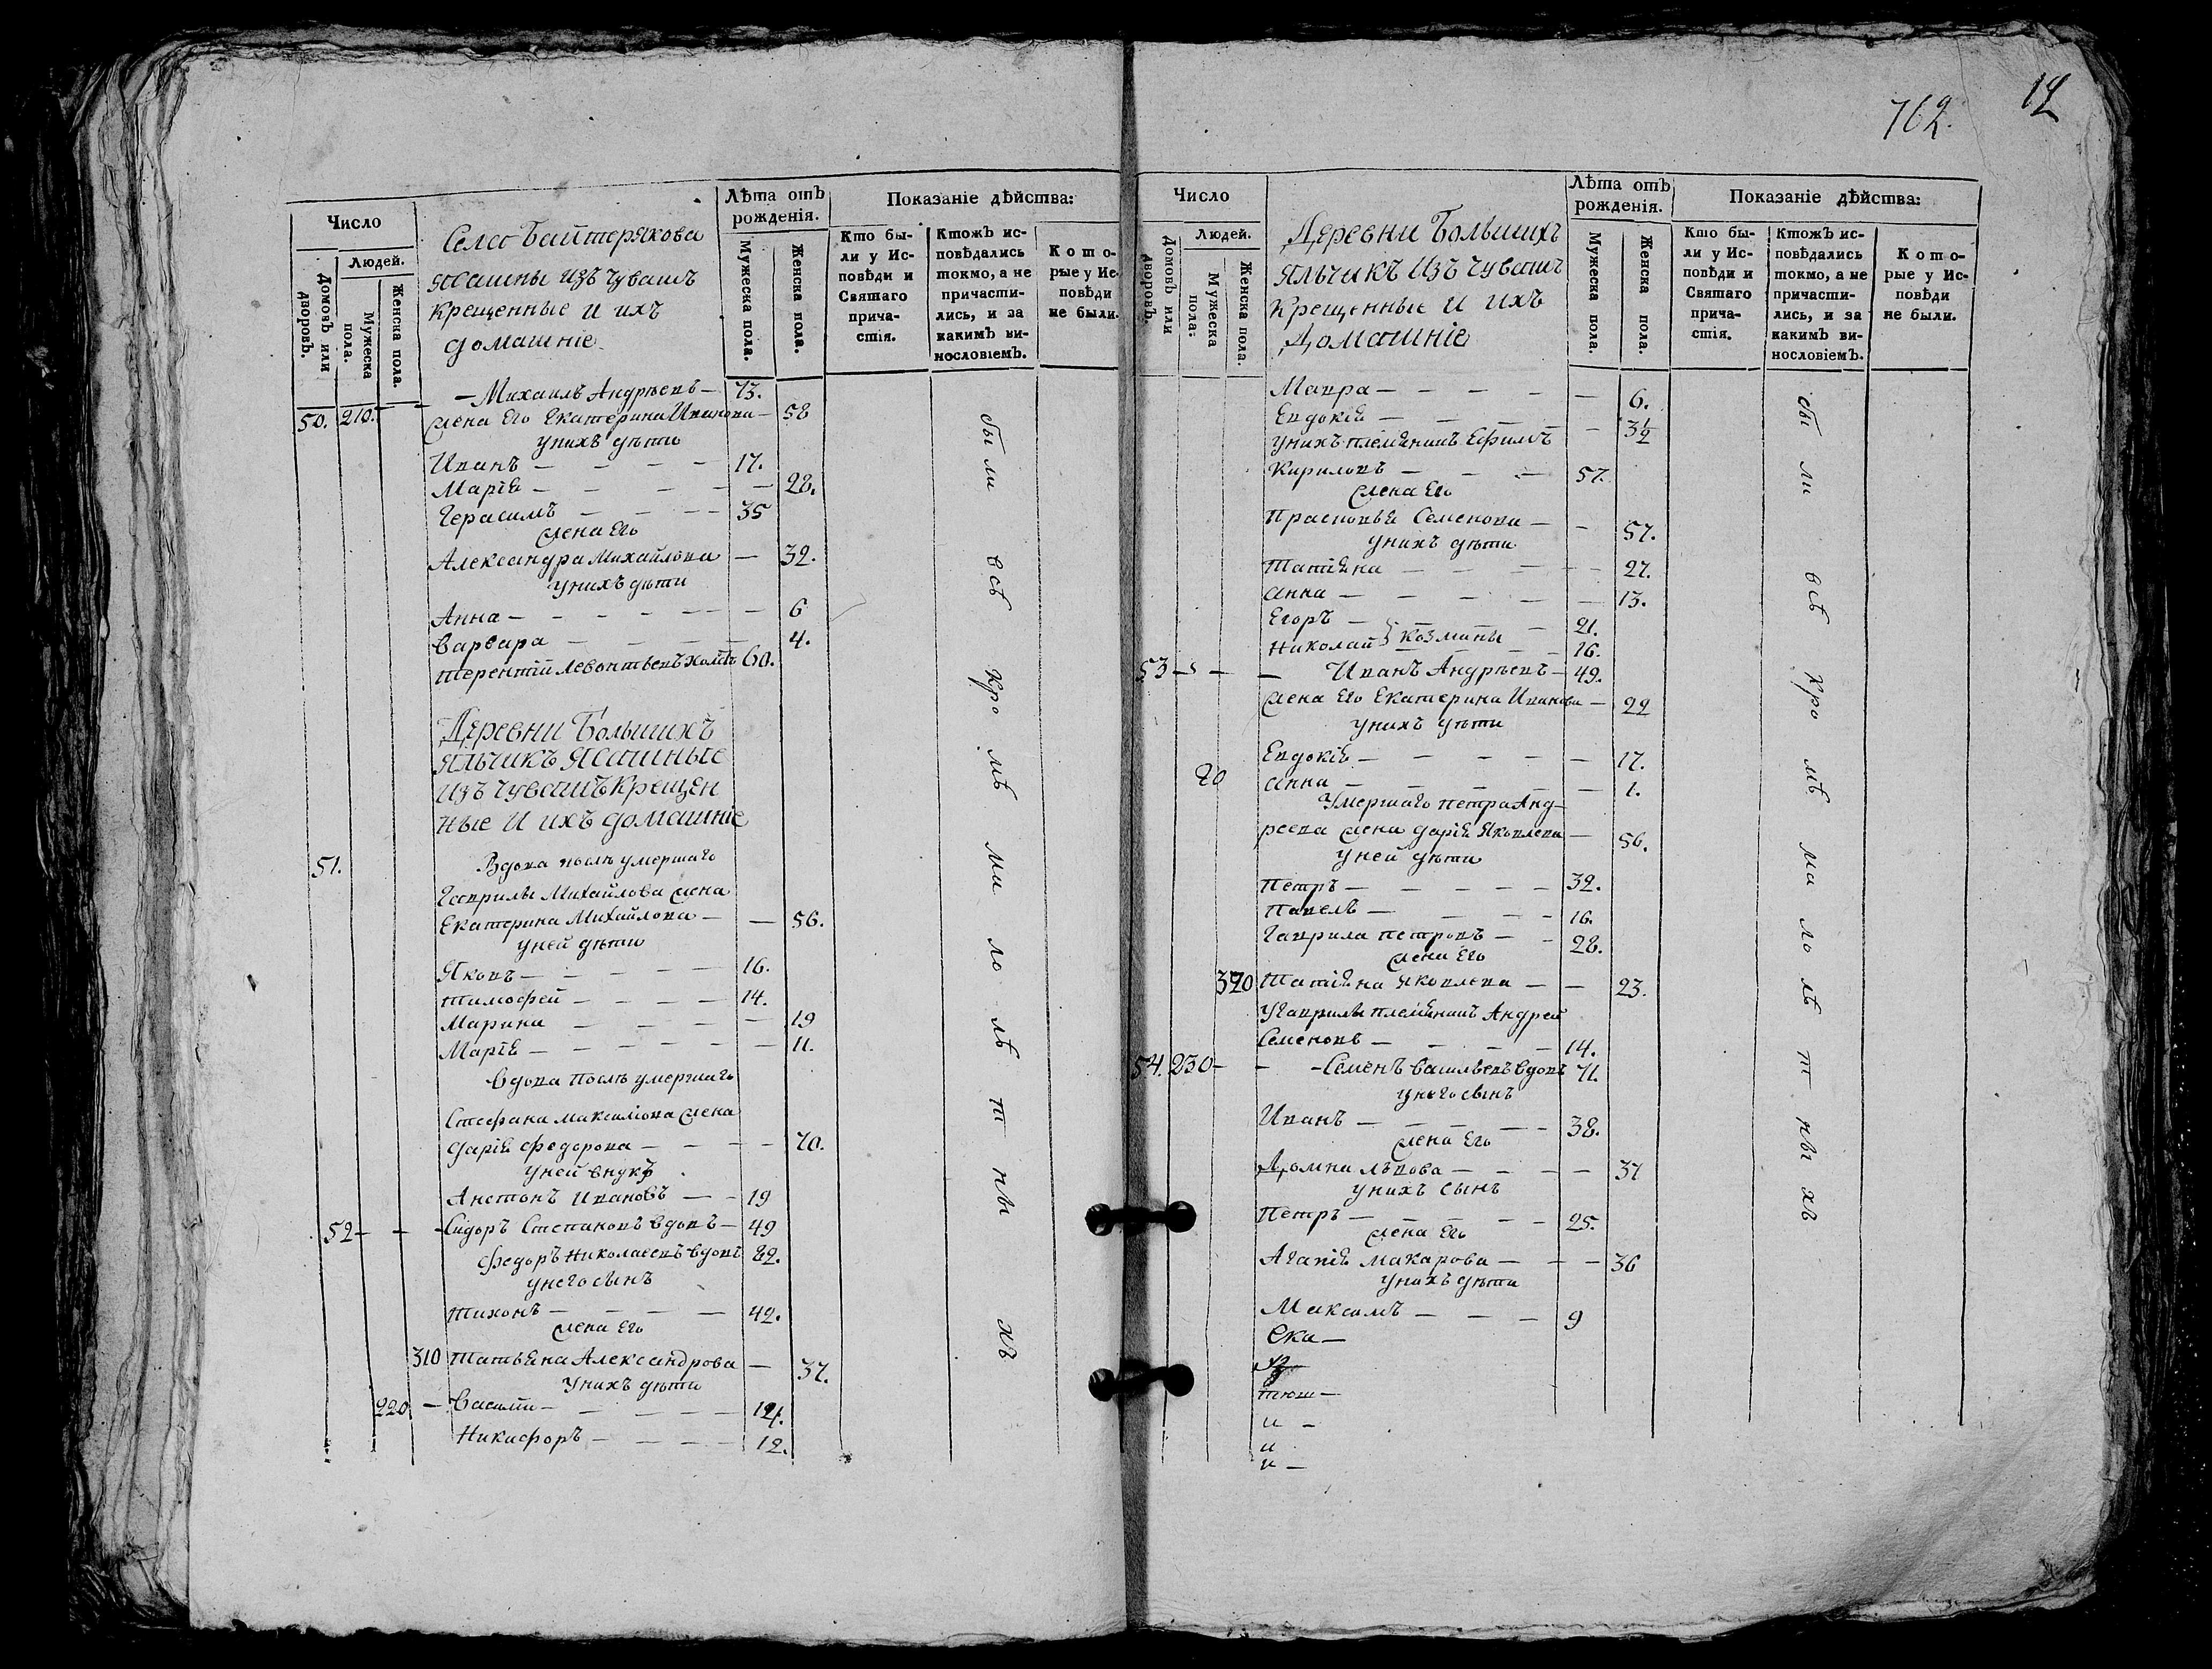 762.
12
Число
Людей.
Домовъ или дворовъ.
Мужеска пола.
Женска пола.
Село Байтерякова
ясашны изъ чувашъ
крещенные и ихъ
домашніе
Лѣта отъ рожденія.
Мужеска пола.
Женска пола.
Показаніе дѣйства:
Кто были у Исповѣди и Святаго причастія.
Ктожъ исповѣдались токмо, а не причастились, и за какимъ винословіемъ.
Которые у Исповѣди не были.
— Михаилъ Андрѣевъ — 73.
50. 210. — жена его Екатерина Иванова — 58
у нихъ дѣти
Иванъ — 17.
Марія — 28.
Герасимъ — 35
жена его
Александра Михайлова — 32.
у нихъ дѣти
Анна — 6
Варвара — 4.
Терентій Левонтьевъ 60.
Деревни Большихъ
Яльчикъ Ясашные
изъ чувашъ крещен
ные и ихъ домашніе
51. Вдова послѣ умершаго
Гаврилы Михайлова жена
Екатерина Михайлова — 56.
у ней дѣти
Яковъ — 16.
Тимофей — 14.
Марина — 19
Марія — 11.
Вдова послѣ умершаго
Стефана Максимова жена
Дарія Федорова — 70.
у ней внукъ
Анстонъ Ивановъ — 19
52 — Сидоръ Степановъ вдовъ — 49
Федоръ Николаевъ вдовъ 82.
у него сынъ
Тихонъ — 42.
жена его
310 Татьяна Александрова — 37.
у нихъ дѣти
220 — Василій — 14.
Никифоръ — 12.
бы ли всѣ кро мѣ ма ло лѣ т ны хъ
Число
Людей.
Домовъ или дворовъ.
Мужеска пола.
Женска пола.
Деревни Большихъ
Яльчикъ изъ чувашъ
крещенные и ихъ
Домашніе
Лѣта отъ рожденія.
Мужеска пола.
Женска пола.
Показаніе дѣйства:
Кто были у Исповѣди и Святаго причастія.
Ктожъ исповѣдались токмо, а не причастились, и за какимъ винословіемъ.
Которые у Исповѣди не были.
Мавра — 6.
Евдокія — 3½
у нихъ племянникъ Ефимъ
Кириловъ — 57.
жена его
Прасковья Семенова — 57.
у нихъ дѣти
Татіяна — 27.
Анна — 13.
Егоръ — 21.
Николай } Козмины — 16.
53 — Иванъ Андрѣевъ — 49.
жена его Екатерина Иванова — 22
у нихъ дѣти
Евдокія — 17.
20 Анна — 1.
Умершаго Петра Анд-
реева жена Дарія Яковлева — 56.
у ней дѣти
Петръ — 32.
Павелъ — 16.
Гаврила Петровъ — 28.
жена его
320 Татіяна Яковлева — 23.
У Гаврилы племянникъ Андрей
Семеновъ — 14.
54. 230 — Семенъ Васильевъ вдовъ 71.
у него сынъ
Иванъ — 38.
жена его
Домна Львова — 37
у нихъ сынъ
Петръ — 25.
жена его
Агапія Макарова — 36
у нихъ дѣти
Максимъ — 9
Ека —
тюш —
и —
и
и —
бы ли всѣ кро мѣ ма ло лѣ т ны хъ